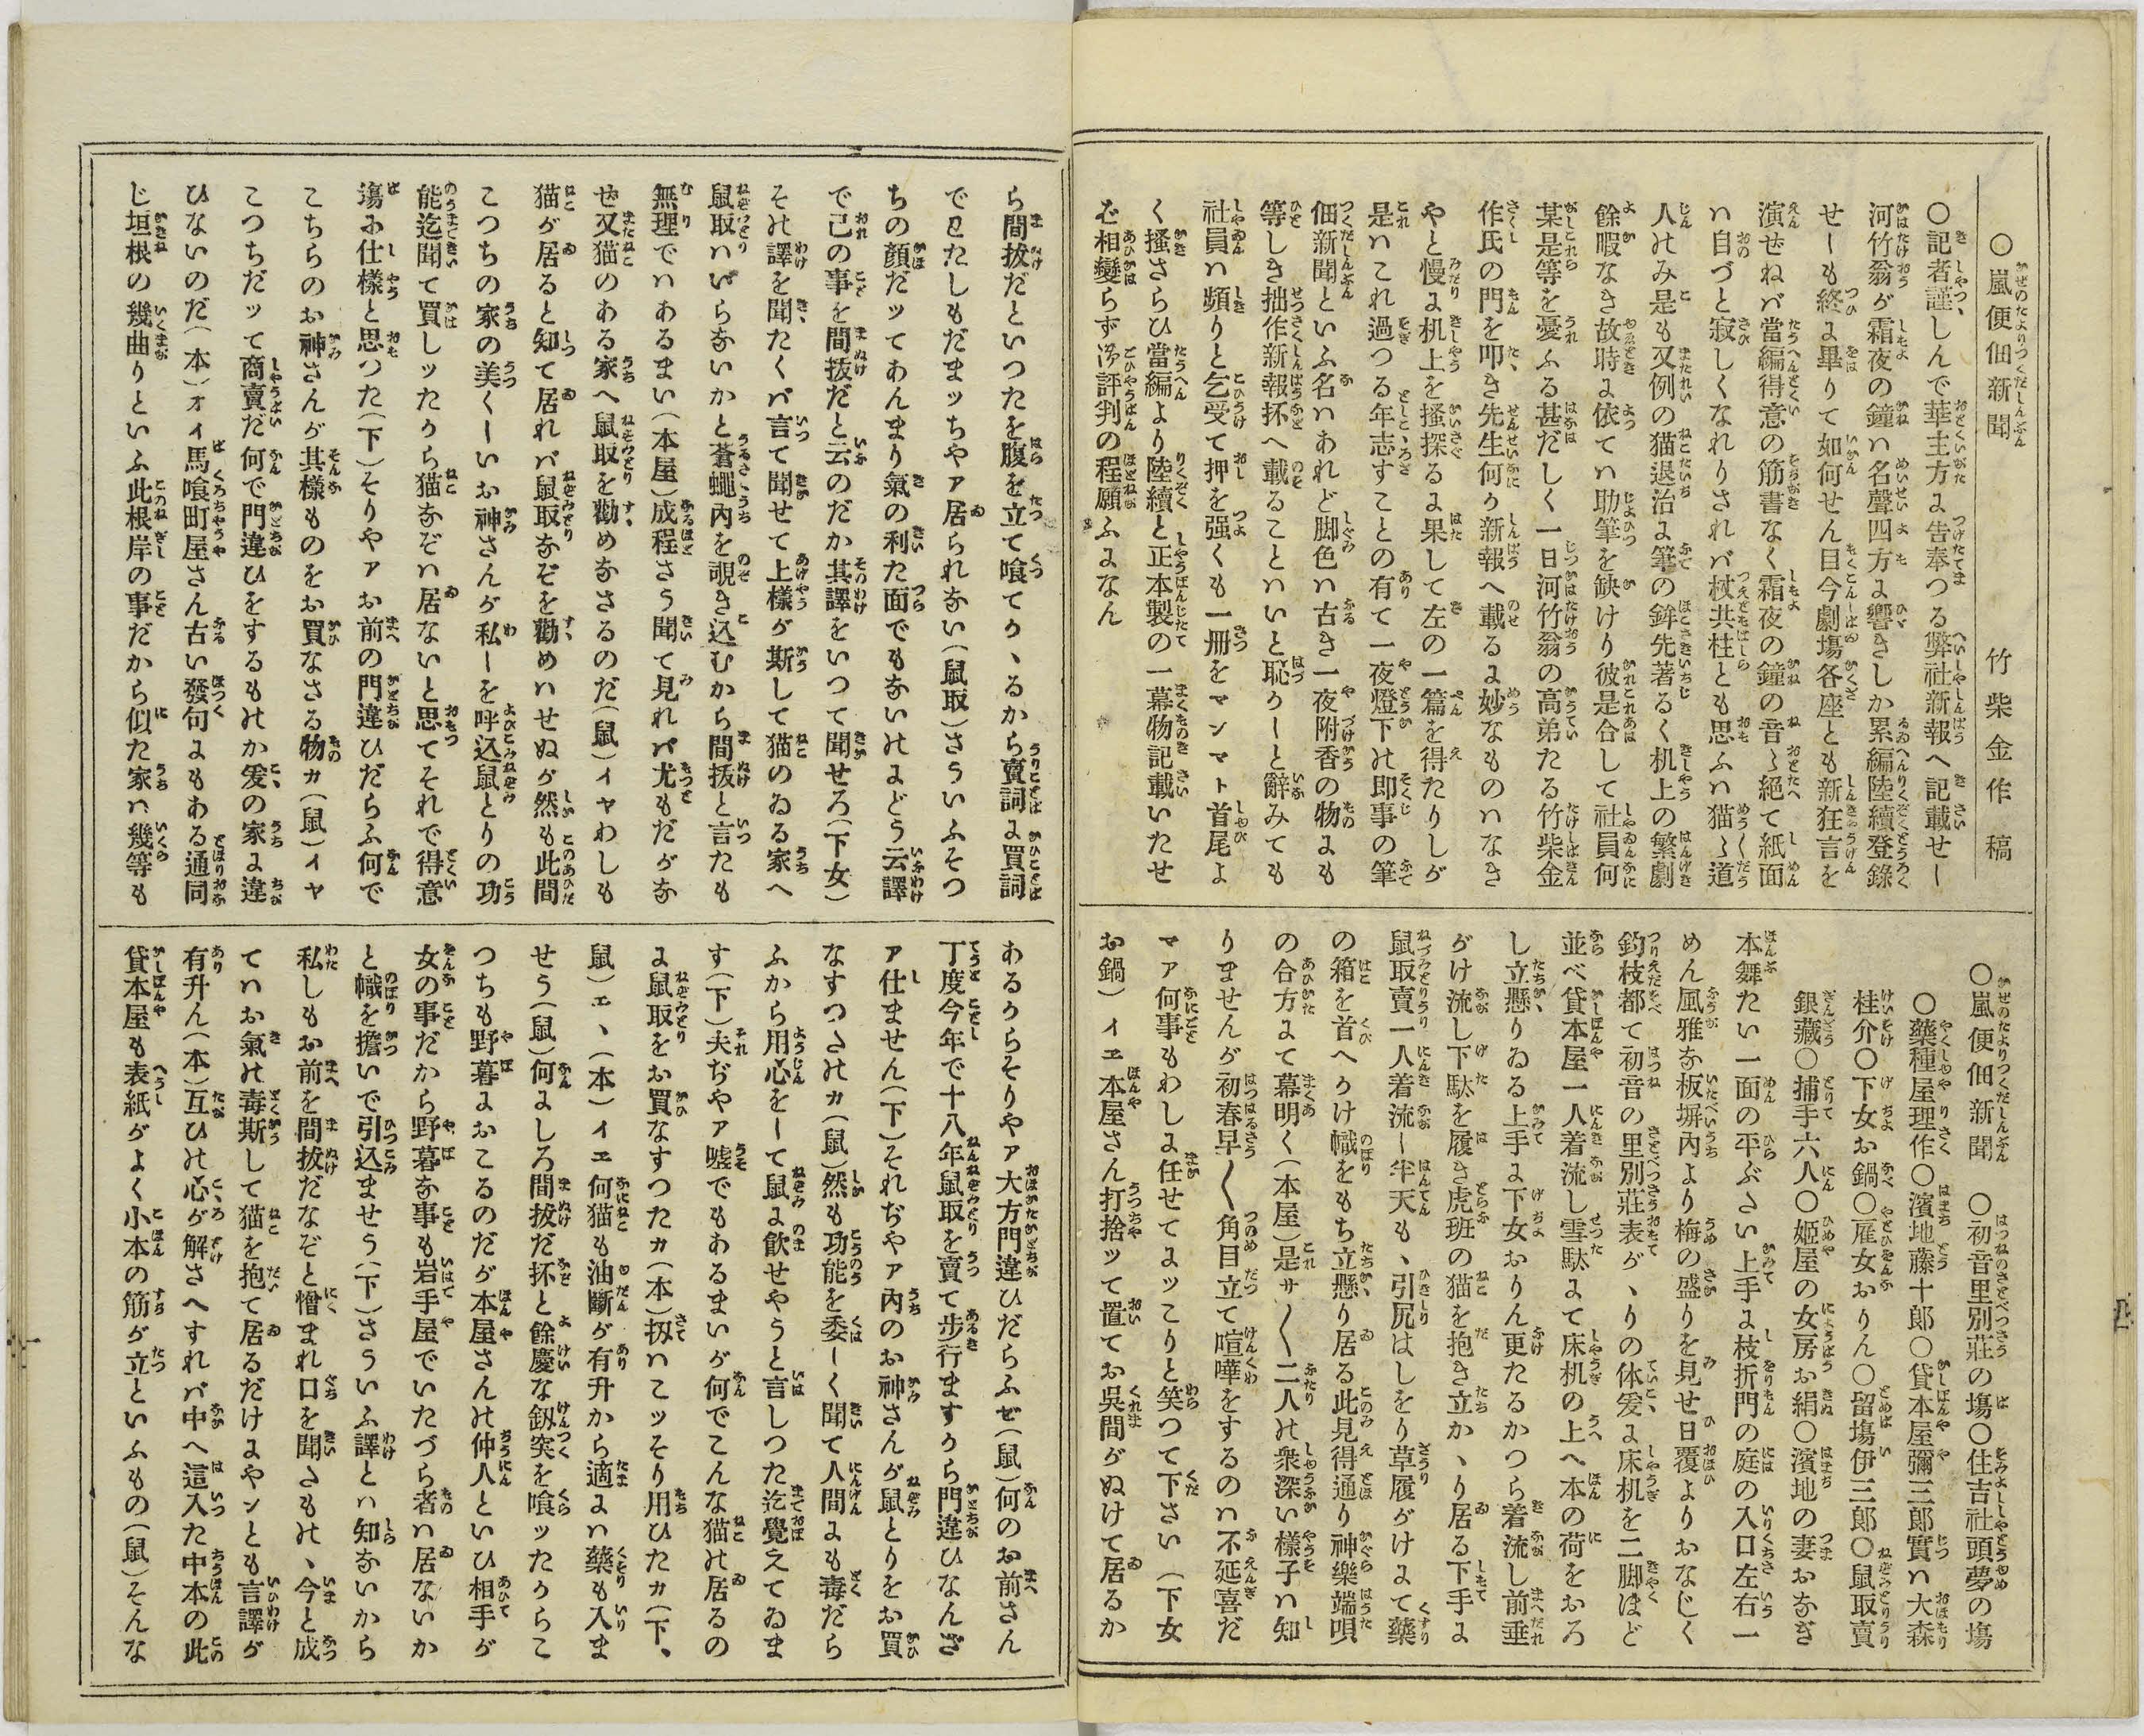 ○嵐便佃新聞　　竹柴金作稿
○記者謹しんで華主方に告奉つる弊社新報へ記載せし
河竹翁が霜夜の鐘ハ名聲四方に響きしか累編陸續登錄
せしも終に畢りて如何せん目今劇塲各座とも新狂言を
演せねバ當編得意の筋書なく霜夜の鐘の音〻絕て紙面
ハ自づと寂しくなれりされバ杖共柱とも思ふハ猫〻道
人のみ是も又例の猫退治に筆の鉾先著るく机上の繁劇
餘暇なき故時に依てハ助筆を缺けり彼是合して社員何
某是等を憂ふる甚だしく一日河竹翁の高弟たる竹柴金
作氏の門を叩き先生何か新報へ載るに妙なものハなき
やと慢に机上を搔探るに果して左の一篇を得たりしが
是ハこれ過つる年志すことの有て一夜燈下の即事の筆
佃新聞といふ名ハあれど脚色ハ古き一夜附香の物にも
等しき拙作新報抔へ載ることハいと恥かしと辭みても
社員ハ頻りと乞受て押を强くも一冊をマンマト首尾よ
く搔さらひ當編より陸續と正本製の一幕物記載いたせ
バ相變らず御評判の程願ふになん
○嵐便佃新聞　○初音里別莊の塲○住吉社頭夢の塲
○藥種屋理作○濱地藤十郎○貸本屋彌三郎實ハ大森
桂介○下女お鍋○雇女おりん○留塲伊三郎○鼠取賣
銀藏○捕手六人○姬屋の女房お絹○濱地の妻おなぎ
本舞たい一面の平ぶさい上手に枝折門の庭の入口左右一
めん風雅な板塀內より梅の盛りを見せ日覆よりおなじく
釣枝都て初音の里別莊表がゝりの体爰に床机を二脚ほど
並べ貸本屋一人着流し雪駄にて床机の上へ本の荷をおろ
し立懸りゐる上手に下女おりん更たるかつら着流し前垂
がけ流し下駄を履き虎班の猫を抱き立かゝり居る下手に
鼠取賣一人着流し半天もゝ引尻はしをり草履がけにて藥
の箱を首へかけ幟をもち立懸り居る此見得通り神樂端唄
の合方にて幕明く（本屋）是サ〳〵二人の衆深い樣子ハ知
りませんが初春早〳〵角目立て喧嘩をするのハ不延喜だ
マア何事もわしに任せてにッこりと笑つて下さい（下女
お鍋）イエ本屋さん打捨ッて置てお吳間がぬけて居るか
ら間拔だといつたを腹を立て喰てかゝるから賣詞に買詞
で已たしもだまッちやア居られない（鼠取）さういふそつ
ちの顏だッてあんまり氣の利た面でもないのにどう云譯
で己の事を間拔だと云のだか其譯をいつて聞せろ（下女）
その譯を聞たくバ言て聞せて上樣が斯して猫のゐる家へ
鼠取ハいらないかと蒼蠅內を覗き込むから間拔と言たも
無理でハあるまい（本屋）成程さう聞て見れバ尤もだがな
ぜ又猫のある家へ鼠取を勸めなさるのだ（鼠）イヤわしも
猫が居ると知て居れバ鼠取なぞを勸めハせぬが然も此間
こつちの家の美くしいお神さんが私しを呼込鼠とりの功
能迄聞て買しッたから猫なぞハ居ないと思てそれで得意
塲に仕樣と思つた（下）そりやアお前の門違ひだらふ何で
こちらのお神さんが其樣ものをお買なさる物か（鼠）イヤ
こつちだッて商賣だ何で門違ひをするものか爰の家に違
ひないのだ（本）オイ馬喰町屋さん古い發句にもある通同
じ垣根の幾曲りといふ此根岸の事だから似た家ハ幾等も
あるからそりやア大方門違ひだらふぜ（鼠）何のお前さん
丁度今年で十八年鼠取を賣て步行ますから門違ひなんざ
ア仕ません（下）それぢやア內のお神さんが鼠とりをお買
なすつたのか（鼠）然も功能を委しく聞て人間にも毒だら
ふから用心をして鼠に飮せやうと言しつた迄覺えてゐま
す（下）夫ぢやア嘘でもあるまいが何でこんな猫の居るの
に鼠取をお買なすつたか（本）扨ハこッそり用ひたか（下、
鼠）エヽ（本）イエ何猫も油斷が有升から適にハ藥も入ま
せう（鼠）何にしろ間拔だ抔と餘慶な釼突を喰ッたからこ
つちも野暮におこるのだが本屋さんの仲人といひ相手が
女の事だから野暮な事も岩手屋でいたづら者ハ居ないか
と幟を擔いで引込ませう（下）さういふ譯とハ知ないから
私しもお前を間拔だなぞと憎まれ口を聞たもの、今と成
てハお氣の毒斯して猫を抱て居るだけにやンとも言譯が
有升ん（本）互ひの心が解さへすれバ中へ這入た中本の此
貸本屋も表紙がよく小本の筋が立といふもの（鼠）そんな